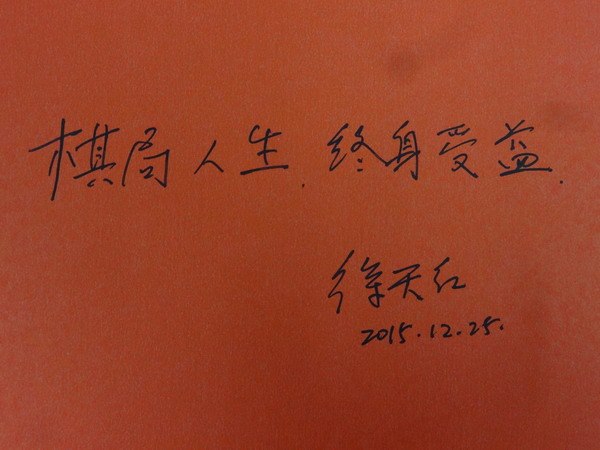 棋局人生.终身受益.
徐天红
2015.12.25.